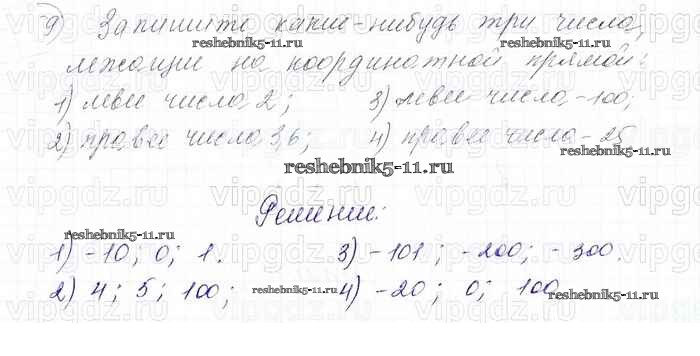 9) Запишите какие-нибудь три числа,
reshebnik5-11.ru reshebnik5-11.ru
лежащие на координатной прямой:
1) левее числа 2; 3) левее числа -100;
2) правее числа 3,6; 4) правее числа -25
reshebnik5-11.ru
reshebnik5-11.ru
Решение:
reshebnik5-11.ru
1) -10; 0; 1. 3) -101; -200; -300.
2) 4; 5; 100; 4) -20; 0; 100
reshebnik5-11.ru reshebnik5-11.ru
vipgdz.ru